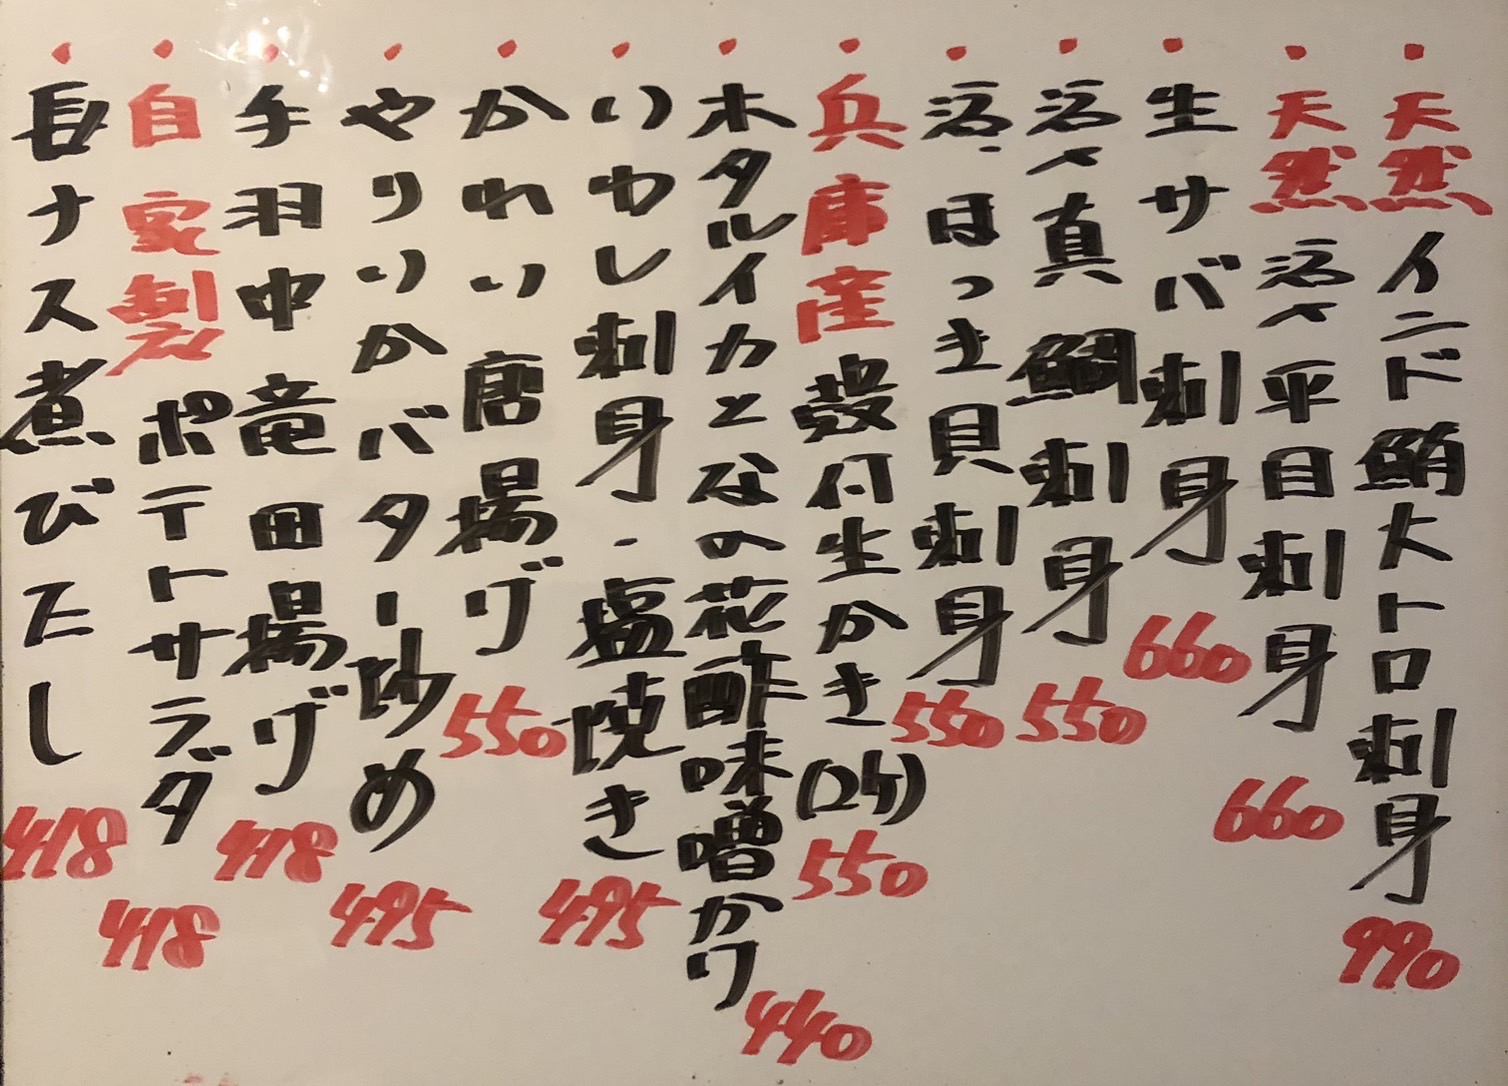 ・天然インド鮪大トロ刺身 990
・天然活〆平目刺身 660
・生サバ刺身 660
・活〆真鯛刺身 550
・活・ほっき貝刺身 550
・兵庫産殻付生かき(2ケ) 550
・ホタルイカとなの花酢味噌かけ 440
・いわし刺身・塩焼き 495
・かれい唐揚げ 550
・やりいかバター炒め 495
・手羽中竜田揚げ 418
・自家製ポテトサラダ 418
・長ナス煮びたし 418